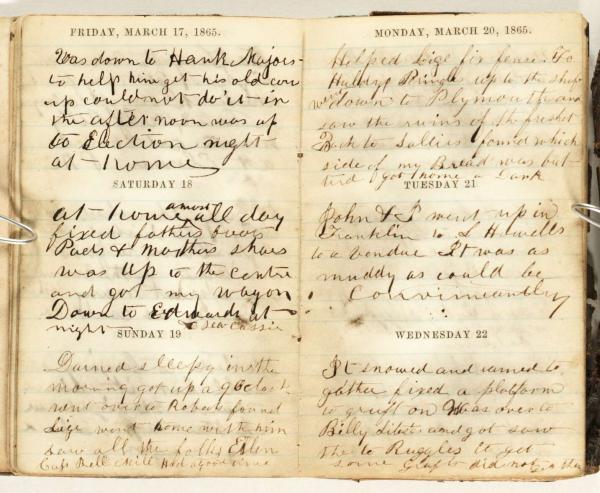 FRIDAY, MARCH 17, 1865.
Was down to Hank Majors
to help him get his old cow
up could not do it in
the after noon was up
to Election night
at home
SATURDAY 18
at home amost all day
fixed fathers boots
Pads & Mothers shoes
was up to the centre
and got my wagon
Down to Edwards at
night to see Cassie
SUNDAY 19
Darned sleepy in the
morning got up a 9 oclock
went over to Roberts found
Lige went home with him
saw all the folks Ellen
had a good time
MONDAY, MARCH 20, 1865.
Helped Lige fix fence. To
up to the shop
down to Plymouth and
saw the ruins of the freshet
Back to Sallies found which
side of my Bread was but
terd got home a Dark
TUESDAY 21
John & I went up in
Franklin to S Howells
to a vendue It was as
muddy as could be
Convineantly
WEDNESDAY 22
It snowed and rained to
gather fixed a platform
to graft on Was over to
Billy and got saw
to Ruggles to get
some Grafts did not